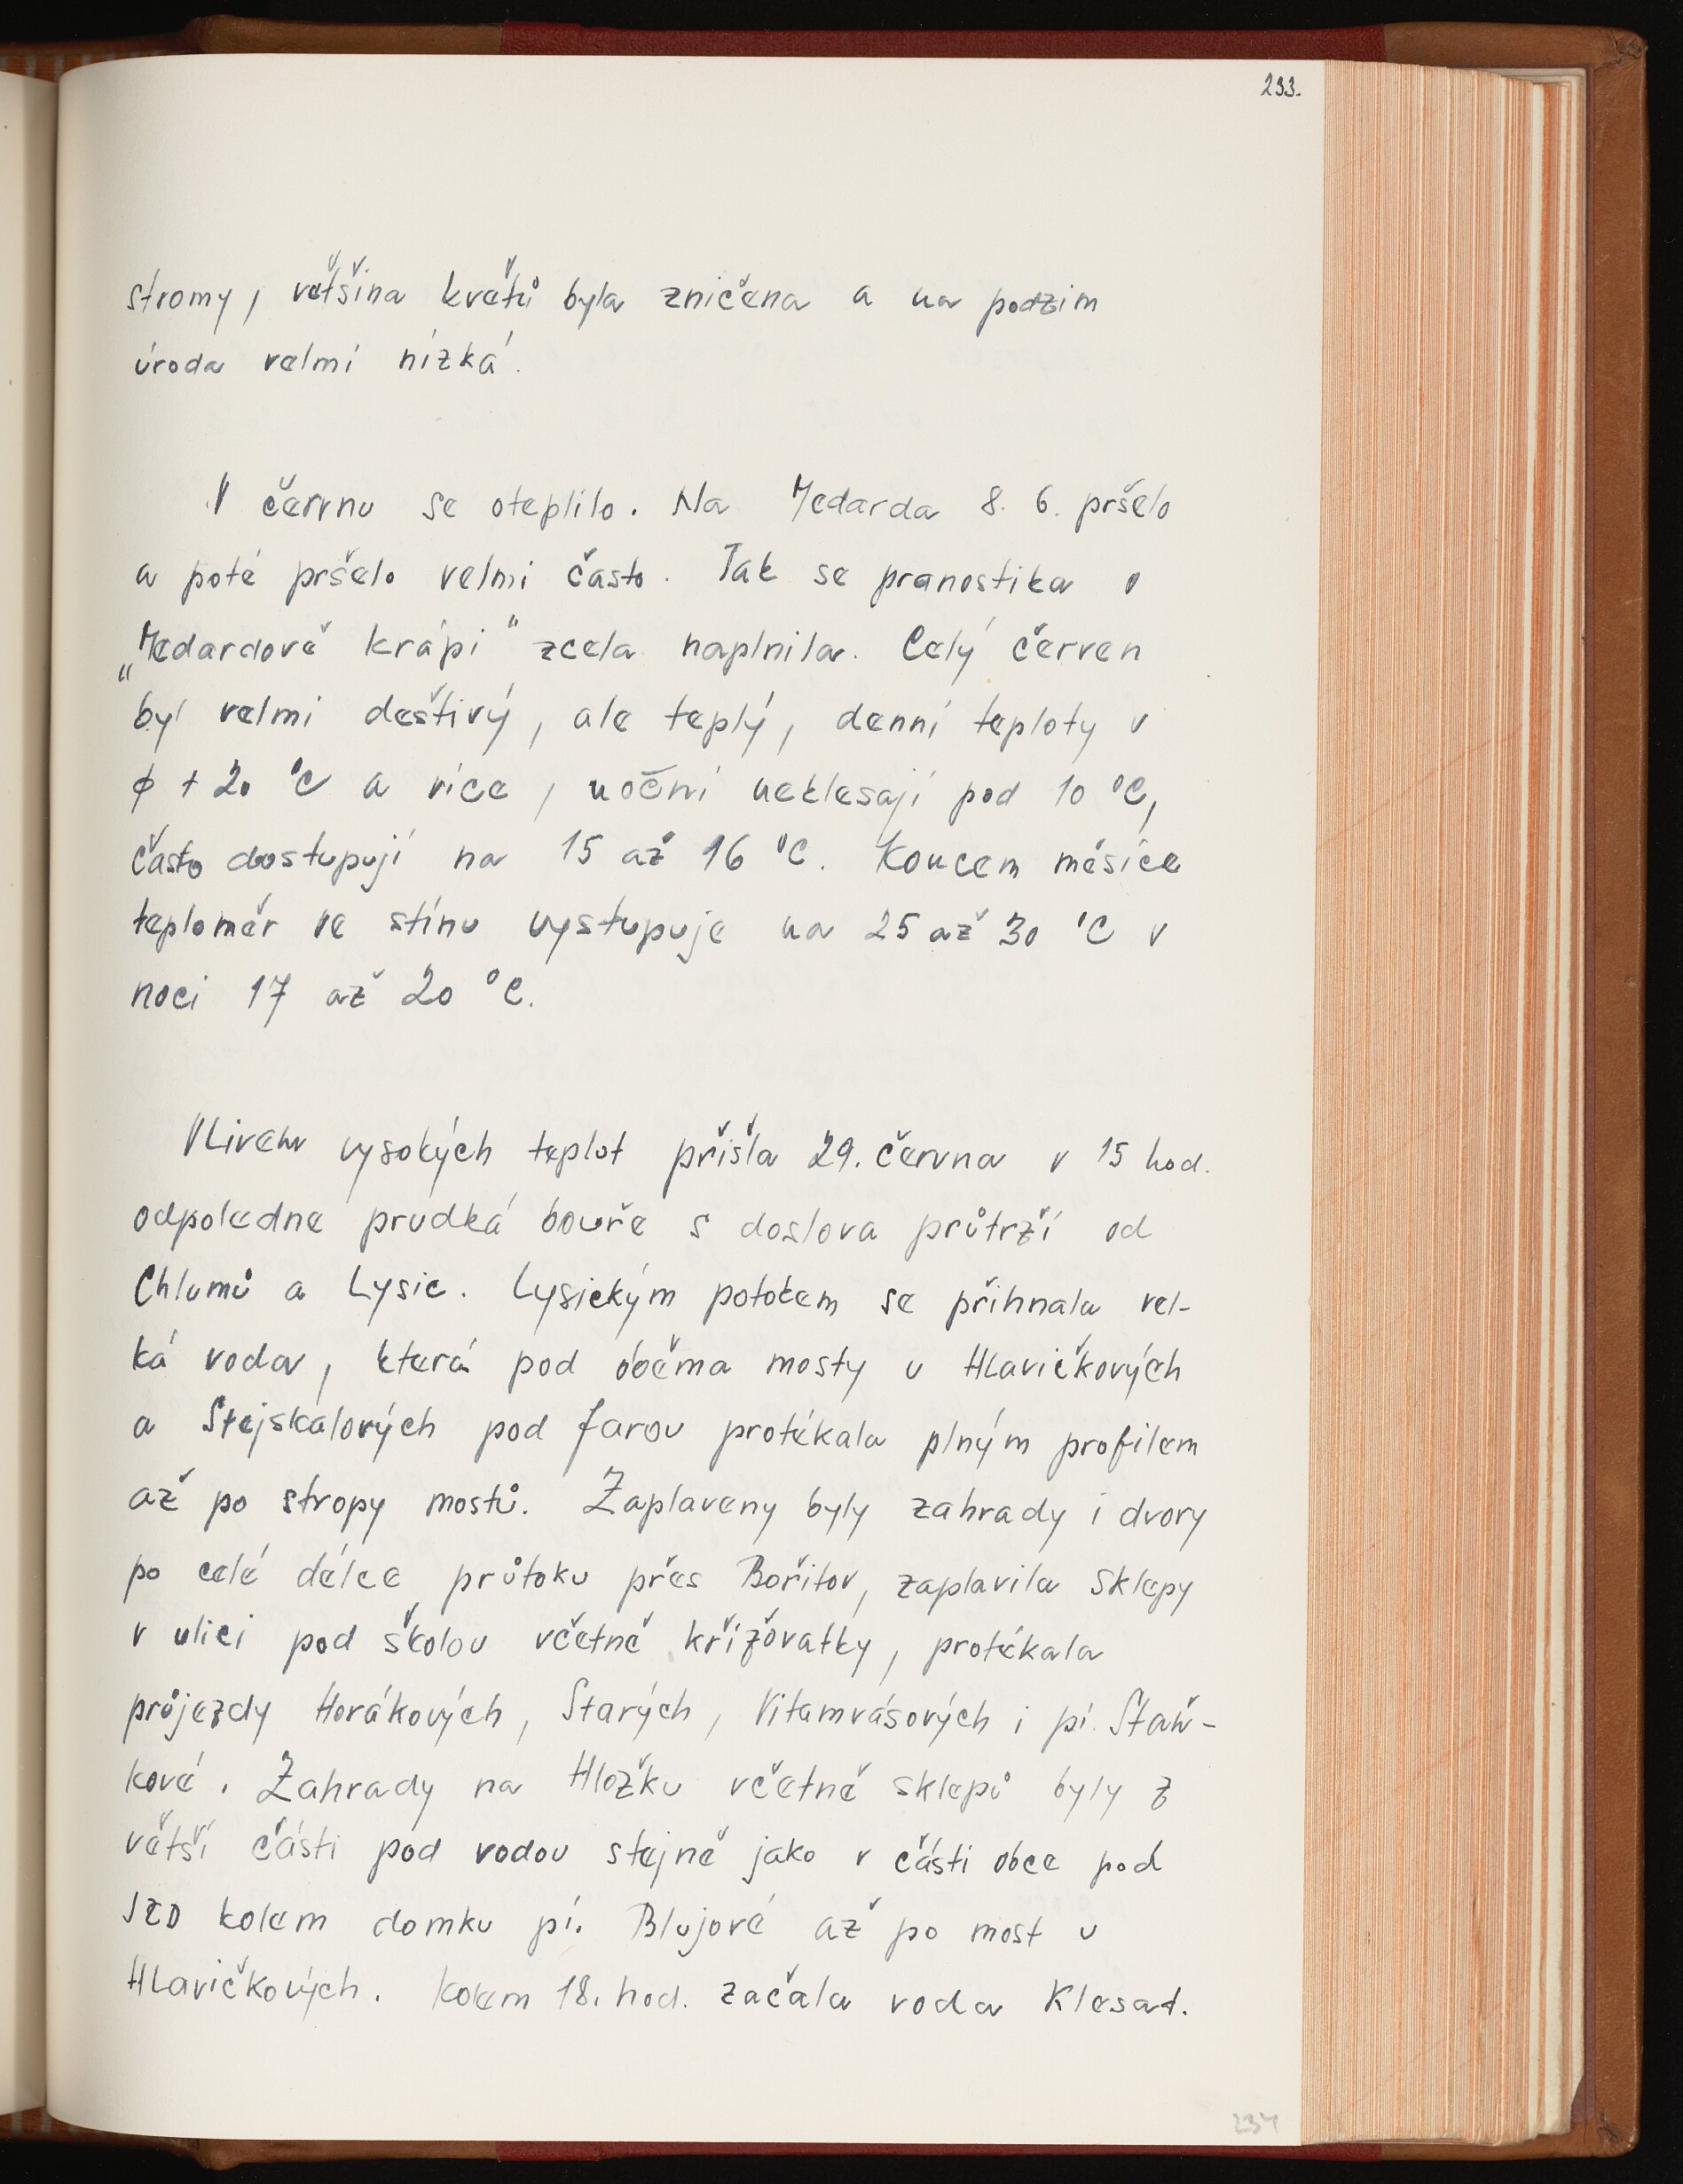 233.
stromy, většina květů byla zničena a na podzim
úroda velmi nízká.
V červnu se oteplilo. Na Medarda 8. 6. pršelo
a poté pršelo velmi často. Tak se pranostika o
„Medardově krápi" zcela naplnila. Celý červen
byl velmi deštivý, ale teplý, denní teploty v
ϕ + 20 °C a více, noční neklesají pod 10 °C,
často dostupují na 15 až 16 °C. Koncem měsíce
teploměr ve stínu vystupuje na 25 až 30 °C v
noci 17 až 20 °C.
Vlivem vysokých teplot přišla 29. června v 15 hod.
odpoledne prudká bouře s doslova průtrží od
Chlumů a Lysic. Lysickým potokem se přihnala vel-
ká voda, která pod oběma mosty u Hlavičkových
a Stejskalových pod farou protékala plným profilem
až po stropy mostů. Zaplaveny byly zahrady i dvory
po celé délce průtoku přes Bořitov, zaplavila sklepy
v ulici pod školou včetně křižovatky, protékala
průjezdy Horákových, Starých, Vitamvásových i pí. Staň-
kové. Zahrady na Hložku včetně sklepů byly z
větší části pod vodou stejně jako v části obce pod
JZD kolem domku pí. Blujové až po most u
Hlavičkových. Kolem 18. hod. začala voda klesat.
234